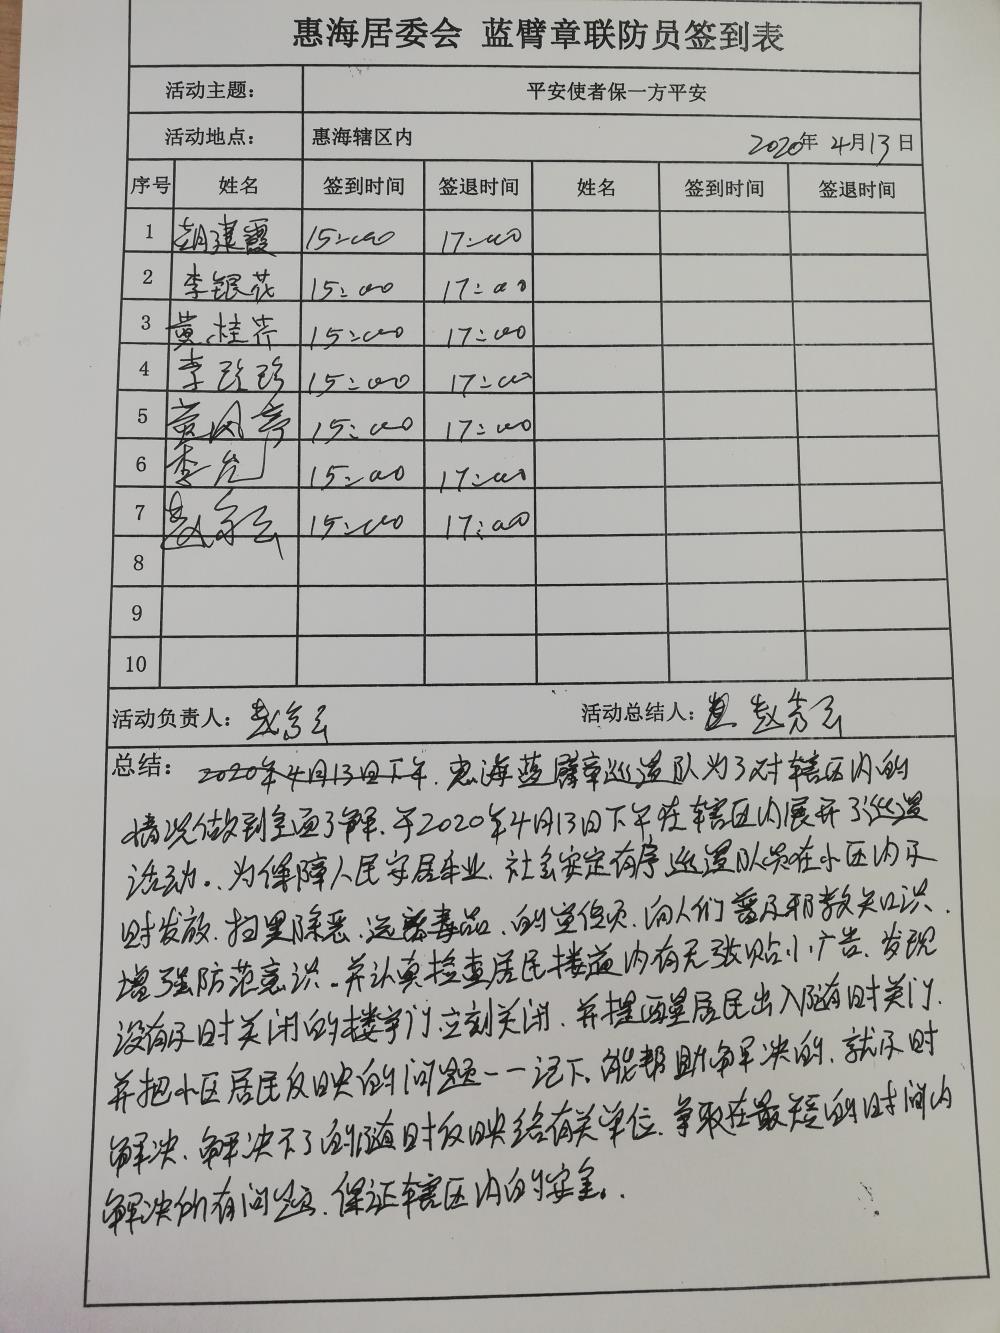 惠海居委会 蓝臂章联防员签到表
活动主题： 平安使者保一方平安
活动地点： 惠海辖区内 2020年 4月13日
序号 姓名 签到时间 签退时间 姓名 签到时间 签退时间
1 胡建霞 15:00 17:00
2 李银花 15:00 17:00
3 黄桂芹 15:00 17:00
4 李珍珍 15:00 17:00
5 黄凤 15:00 17:00
6 李 15:00 17:00
7 赵秀云 15:00 17:00
8
9
10
活动负责人：赵秀云 活动总结人：赵秀云
总结： 2020年4月13日下午，惠海蓝臂章巡逻队为了对辖区内的
情况做到全面了解，于2020年4月13日下午在辖区内展开了巡逻
活动。为保障人民安居乐业，社会安定有序巡逻队员在小区内及
时发放，扫黑除恶，远离毒品，的宣传页，向人们普及邪教知识，
增强防范意识。并认真检查居民楼道内有无张贴小广告，发现
没有及时关闭的楼宇门立刻关闭，并提醒居民出入随时关门，
并把小区居民反映的问题一一记下，能帮助解决的，就及时
解决，解决不了的随时反映给有关单位，争取在最短的时间内
解决所有问题，保证辖区内的安全。